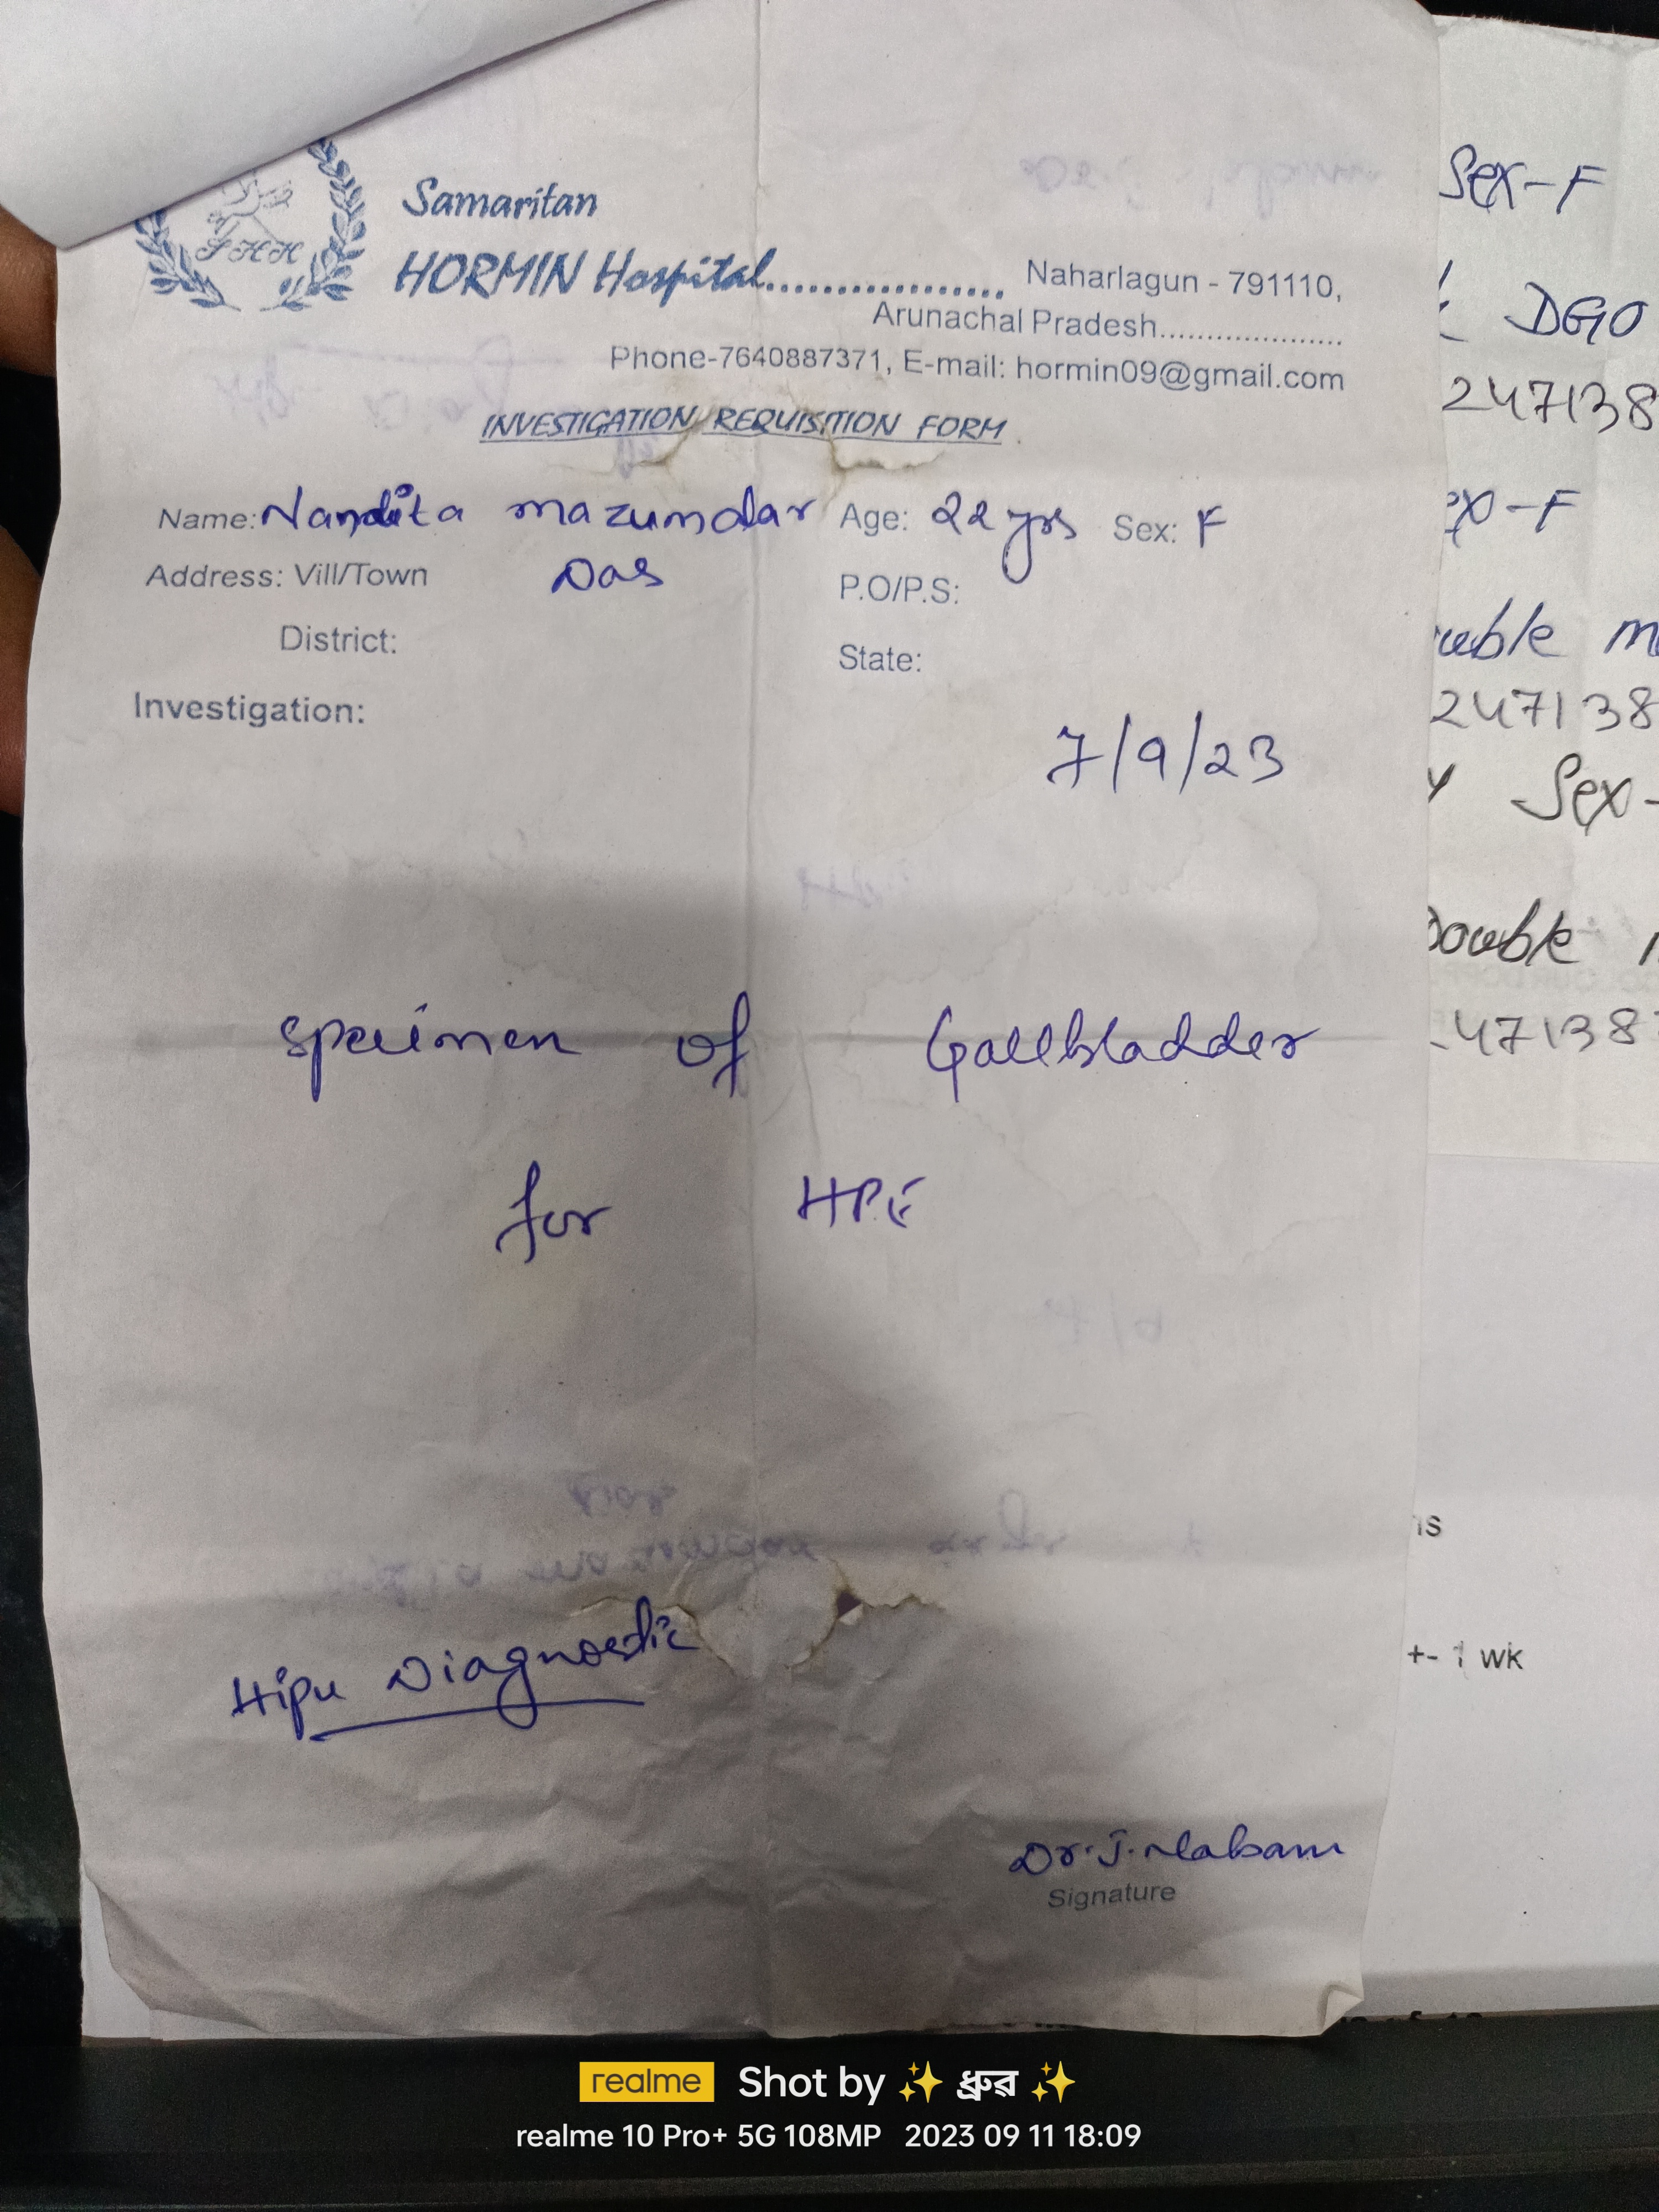 SHH
Samaritan
HORMIN Hospital.................. Naharlagun - 791110,
Arunachal Pradesh.....................
Phone-7640887371, E-mail: hormin09@gmail.com
INVESTIGATION REQUISITION FORM
Name: Nandita mazumdar Age: 22 yrs Sex: F
Address: Vill/Town Das P.O/P.S:
District:
State:
Investigation:
7/9/23
specimen of Gallbladder
for HPE
Hipu Diagnostic
Dr. J. Nabam
Signature
Sex-F
DGO
247138
ex-F
uble m
247138
Sex-
Double
47138
+- 1 wk
realme Shot by ✨ ধ্ৰুৱ ✨
realme 10 Pro+ 5G 108MP 2023 09 11 18:09